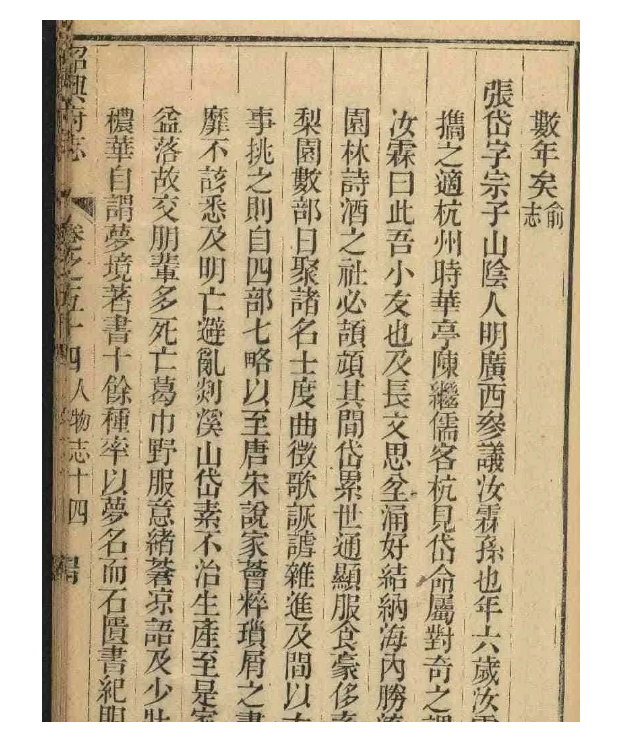 數年矣 俞志
張岱字宗子山陰人明廣西參議汝霖孫也年六歲汝
攜之適杭州時華亭陳繼儒客杭見岱命屬對奇之謂
汝霖曰此吾小友也及長文思坌涌好結納海內勝
園林詩酒之社必頡頏其間岱累世通顯服食豪侈
梨園數部日聚諸名士度曲徵歌詼謔雜進及間以
事挑之則自四部七略以至唐宋說家薈粹瑣屑之書
靡不該悉及明亡避亂剡溪山岱素不治生產至是家
益落故交朋輩多死亡葛巾野服意緒蒼凉語及少壯
穠華自謂夢境著書十餘種率以夢名而石匱書紀明
紹興府志 卷之五十四 人物志十四